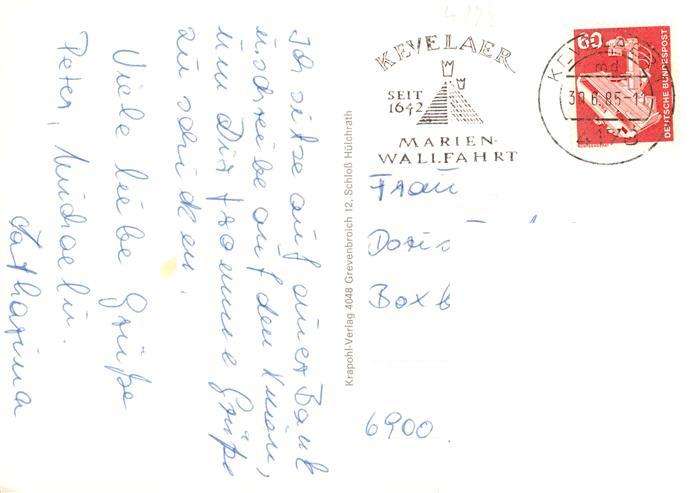 Ich sitze auf einer Bank
u. schreibe auf den Knien,
um Dir fromme Grüße
zu schicken.
Viele liebe Grüße
Peter, Michael u.
Katharina
Krapohl-Verlag 4048 Grevenbroich 12, Schloß Hülchrath
KEVELAER
SEIT
1642
MARIEN-
WALLFAHRT
60
DEUTSCHE BUNDESPOST
30.6.85-11
Frau
Doris
6900